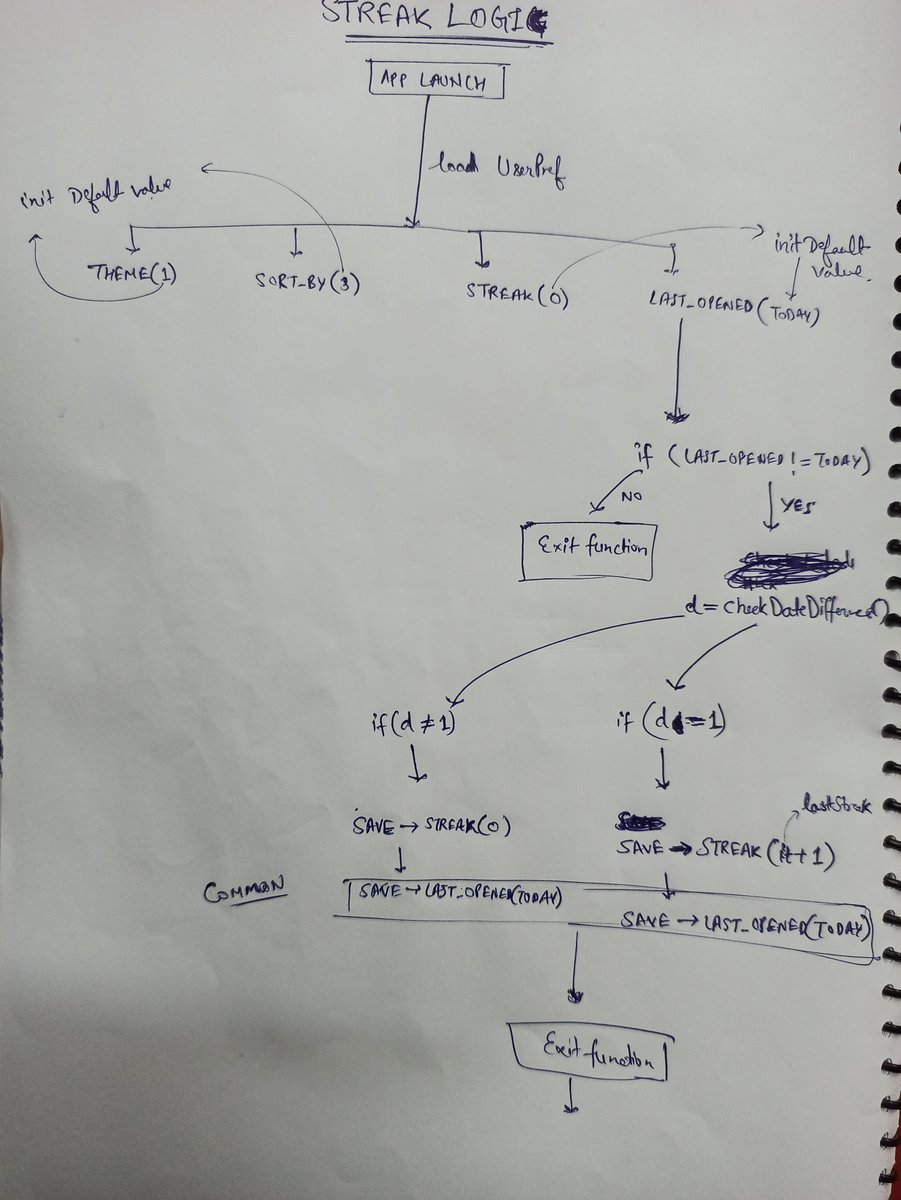 STREAK LOGIC
APP LAUNCH
load UserPref
init Default value
init Default
value.
THEME(1)
SORT-BY(3)
STREAK(0)
LAST_OPENED(TODAY)
if (LAST_OPENED != TODAY)
NO
YES
Exit function
d = checkDateDifference()
if(d ≠ 1)
if (d == 1)
lastStreak
SAVE → STREAK(0)
SAVE → STREAK( +1)
COMMON
SAVE → LAST_OPENED(TODAY)
SAVE → LAST_OPENED(TODAY)
Exit function